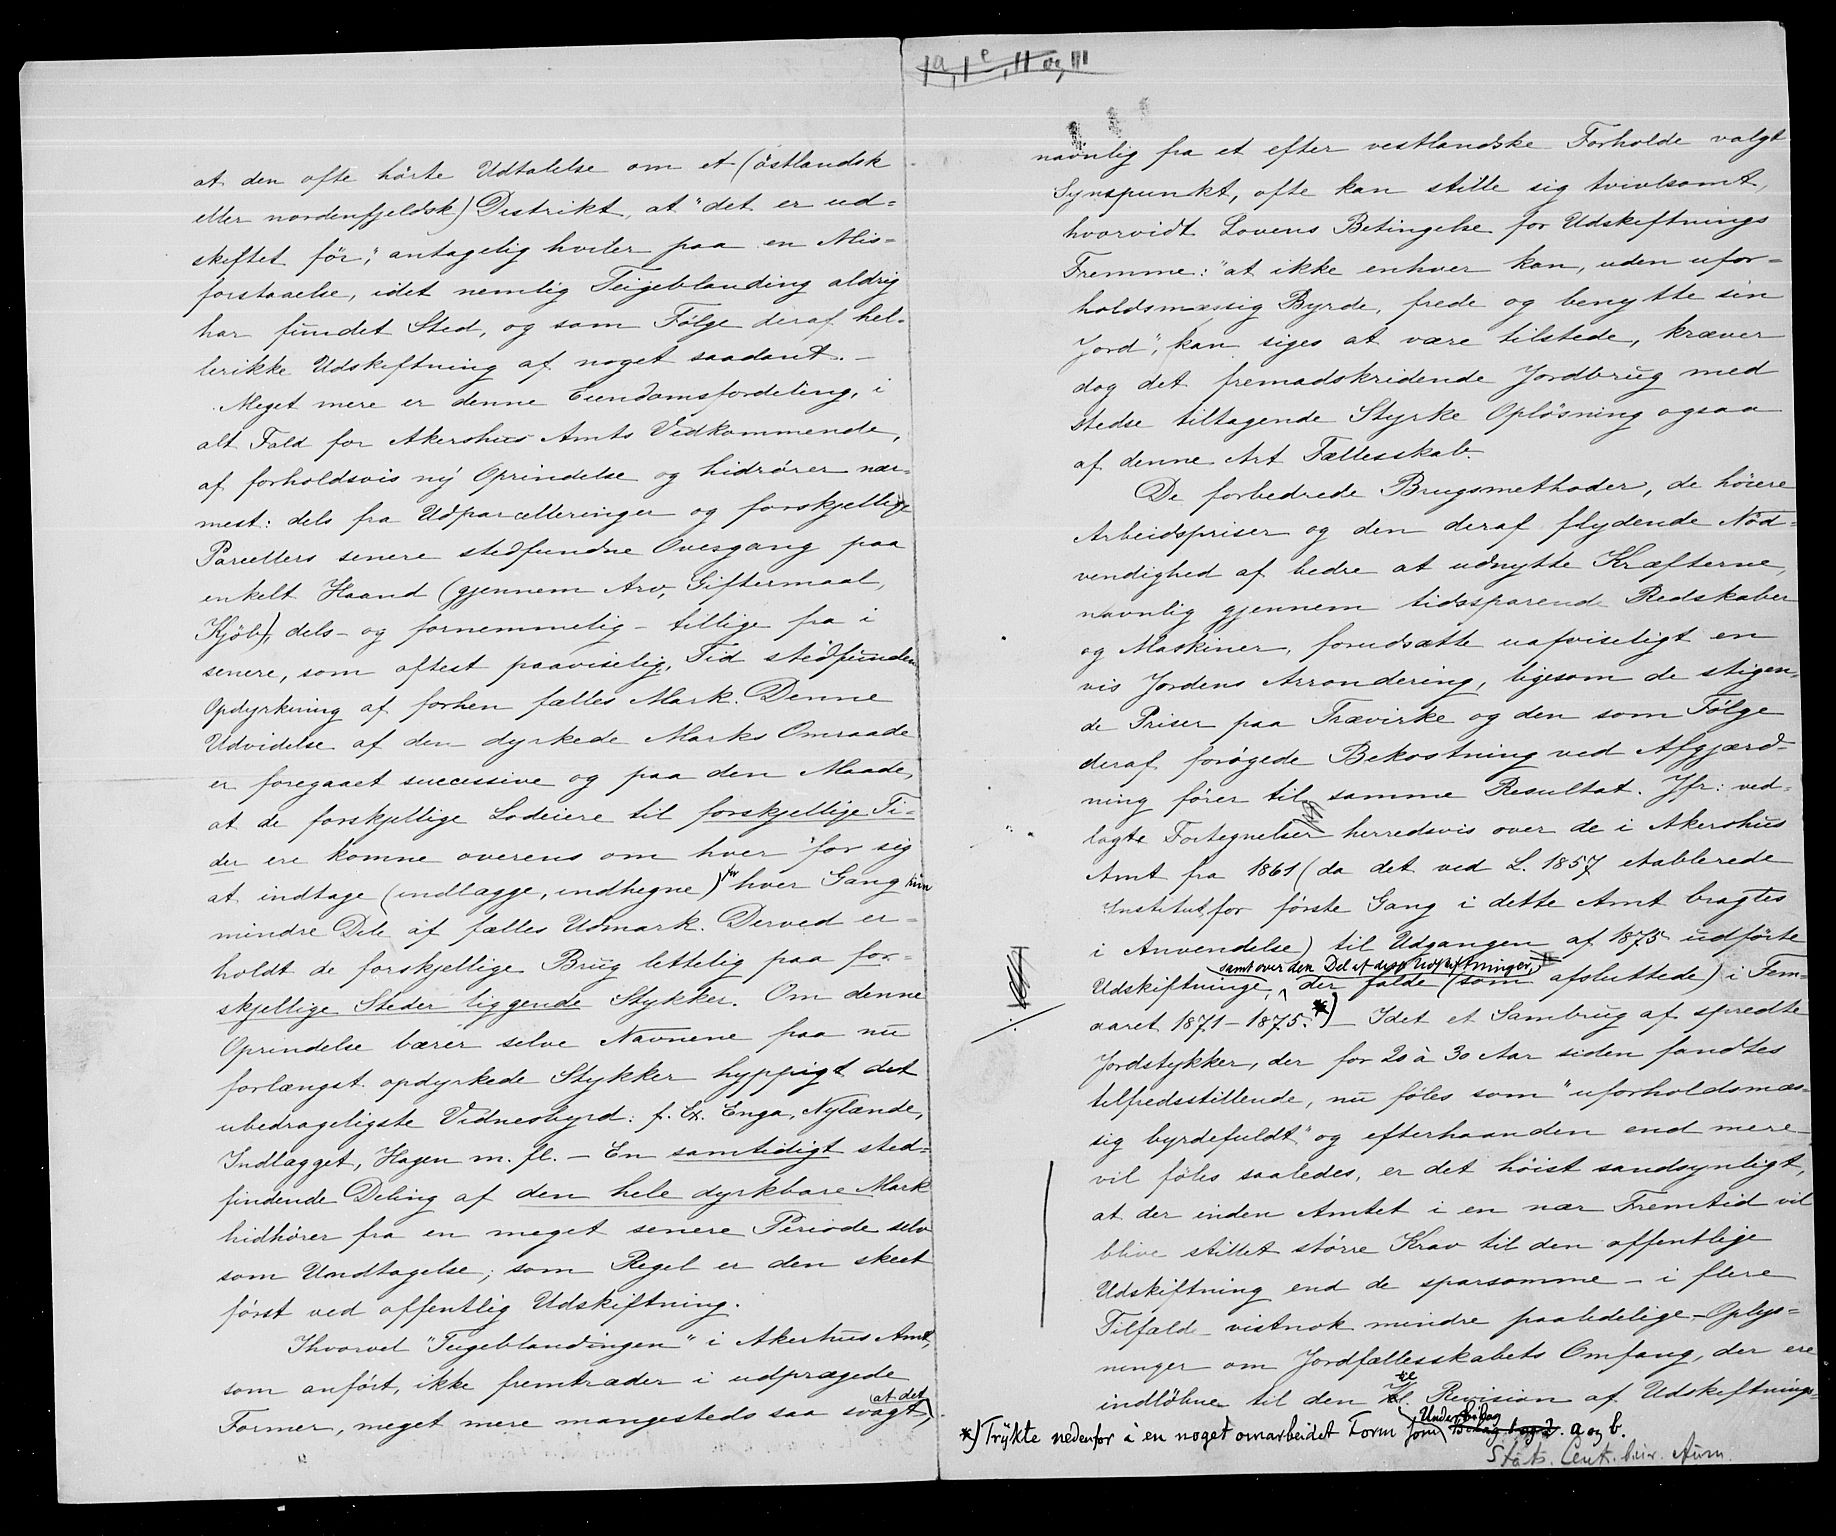 1a, 1e, II og III
at den ofte hörte Udtalelse om et (östlandsk
eller nordenfjeldsk) Distrikt, at "det er ud=
skiftet för", antagelig hviler paa en Mis=
forstaaelse, idet nemlig Teigeblanding aldrig
har fundet Sted, og som Følge deraf hel-
lerikke Udskiftning af noget saadant. –
Meget mere er denne Eiendomsfordeling, i
alt Fald for Akershus Amts Vedkommende,
af forholdsvis ny Oprindelse og hidrører nær=
mest: dels fra Udparcelleringer og forskjellige
Parcellers senere stedfundne Overgang paa
enkelt Haand (gjennem Arv, Giftermaal,
Kjöb), dels – og fornemmelig – tillige fra i
senere, som oftest paaviselig, Tid stedfunden
Opdyrkning af forhen fælles Mark. Denne
Udvidelse af den dyrkede Marks Omraade
er foregaaet successive og paa den Maade,
at de forskjellige Lodeiere til forskjellige Ti-
der ere komne overens om hver for sig
at indtage (indlægge, indhegne) hver Gang kun
mindre Dele af fælles Udmark. Derved er=
holdt de forskjellige Brug lettelig paa for=
skjellige Steder liggende Stykker. Om denne
Oprindelse bærer selve Navnene paa nu
forlængst opdyrkede Stykker hyppigt det
ubedrageligste Vidnesbyrd: f. Ex. Enga, Nylænde,
Indlægget, Hagen m. fl. – En samtidigt sted=
findende Deling af den hele dyrkbare Mark
hidhører fra en meget senere Periode selv
som Undtagelse; som Regel er den skeet
først ved offentlig Udskiftning.
Ihvorvel "Teigeblandingen" i Akershus Amt,
som anført, ikke fremtræder i udprægede
Former, meget mere mangesteds saa svagt, at det
navnlig fra et efter vestlandske Forholde valgt
Synspunkt, ofte kan stille sig tvivlsomt,
hvorvidt Lovens Betingelse for Udskiftnings
Fremme: "at ikke enhver kan, uden ufor=
holdsmæssig Byrde, frede og benytte sin
Jord", kan siges at være tilstede, kræver
dog det fremadskridende Jordbrug med
stedse tiltagende Styrke Opløsning ogsaa
af denne Art Fællesskab.
De forbedrede Brugsmethoder, de höiere
Arbeidspriser og den deraf flydende Nöd=
vendighed af bedre at udnytte Kræfterne,
navnlig gjennem tidssparende Redskaber
og Maskiner, forudsætte uafviseligt en
vis Jordens Arrondering, ligesom de stigen=
de Priser paa Trævirke og den som Følge
deraf forøgede Bekostning ved Afgjærd=
ning fører til samme Resultat. Jfr: ved=
lagte Fortegnelser herredsvis over de i Akershus
Amt fra 1861 (da det ved L. 1857 etablerede
Institut for første Gang i dette Amt bragtes
i Anvendelse) til Udgangen af 1875 udförte
samt over den Del af disse Udskiftninger,
Udskiftninge, der falde (som afsluttede) i Fem=
aaret 1871 – 1875. *) – Idet et Sambrug af spredte
Jordstykker, der for 20 à 30 Aar siden fandtes
tilfredsstillende, nu föles som "uforholdsmæs=
sig byrdefuldt" og efterhaanden end mere
vil föles saaledes, er det höist sandsynligt,
at der inden Amtet i en nær Fremtid vil
blive stillet större Krav til den offentlige
Udskiftning end de sparsomme – i flere
Tilfælde vistnok mindre paalidelige – Oplys=
ninger om Jordfællesskabets Omfang, der ere
indløbne til den Kgl. Revision af Udskiftnings=
*) Trykte nedenfor i en noget omarbeidet Form som Underbilag Bilag 1 og 2. a og b.
Stats. Cent.